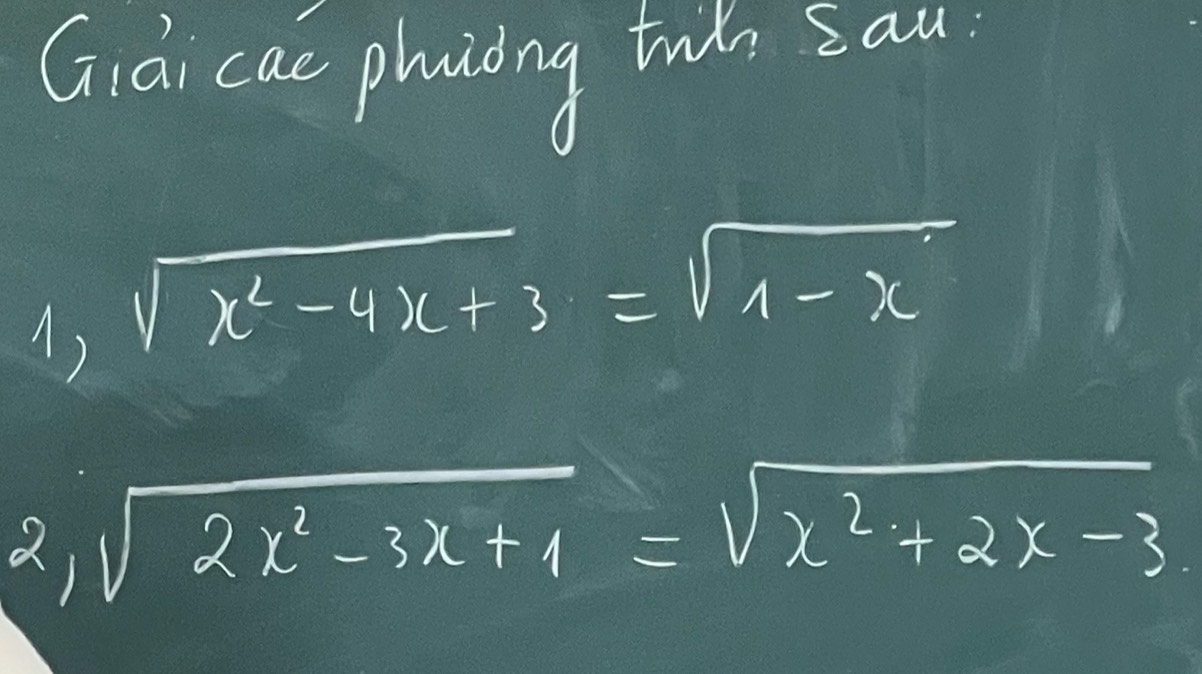 Giải các phương trình sau:
1, √(x² - 4x + 3) = √(1 - x)
2, √(2x² - 3x + 1) = √(x² + 2x - 3)